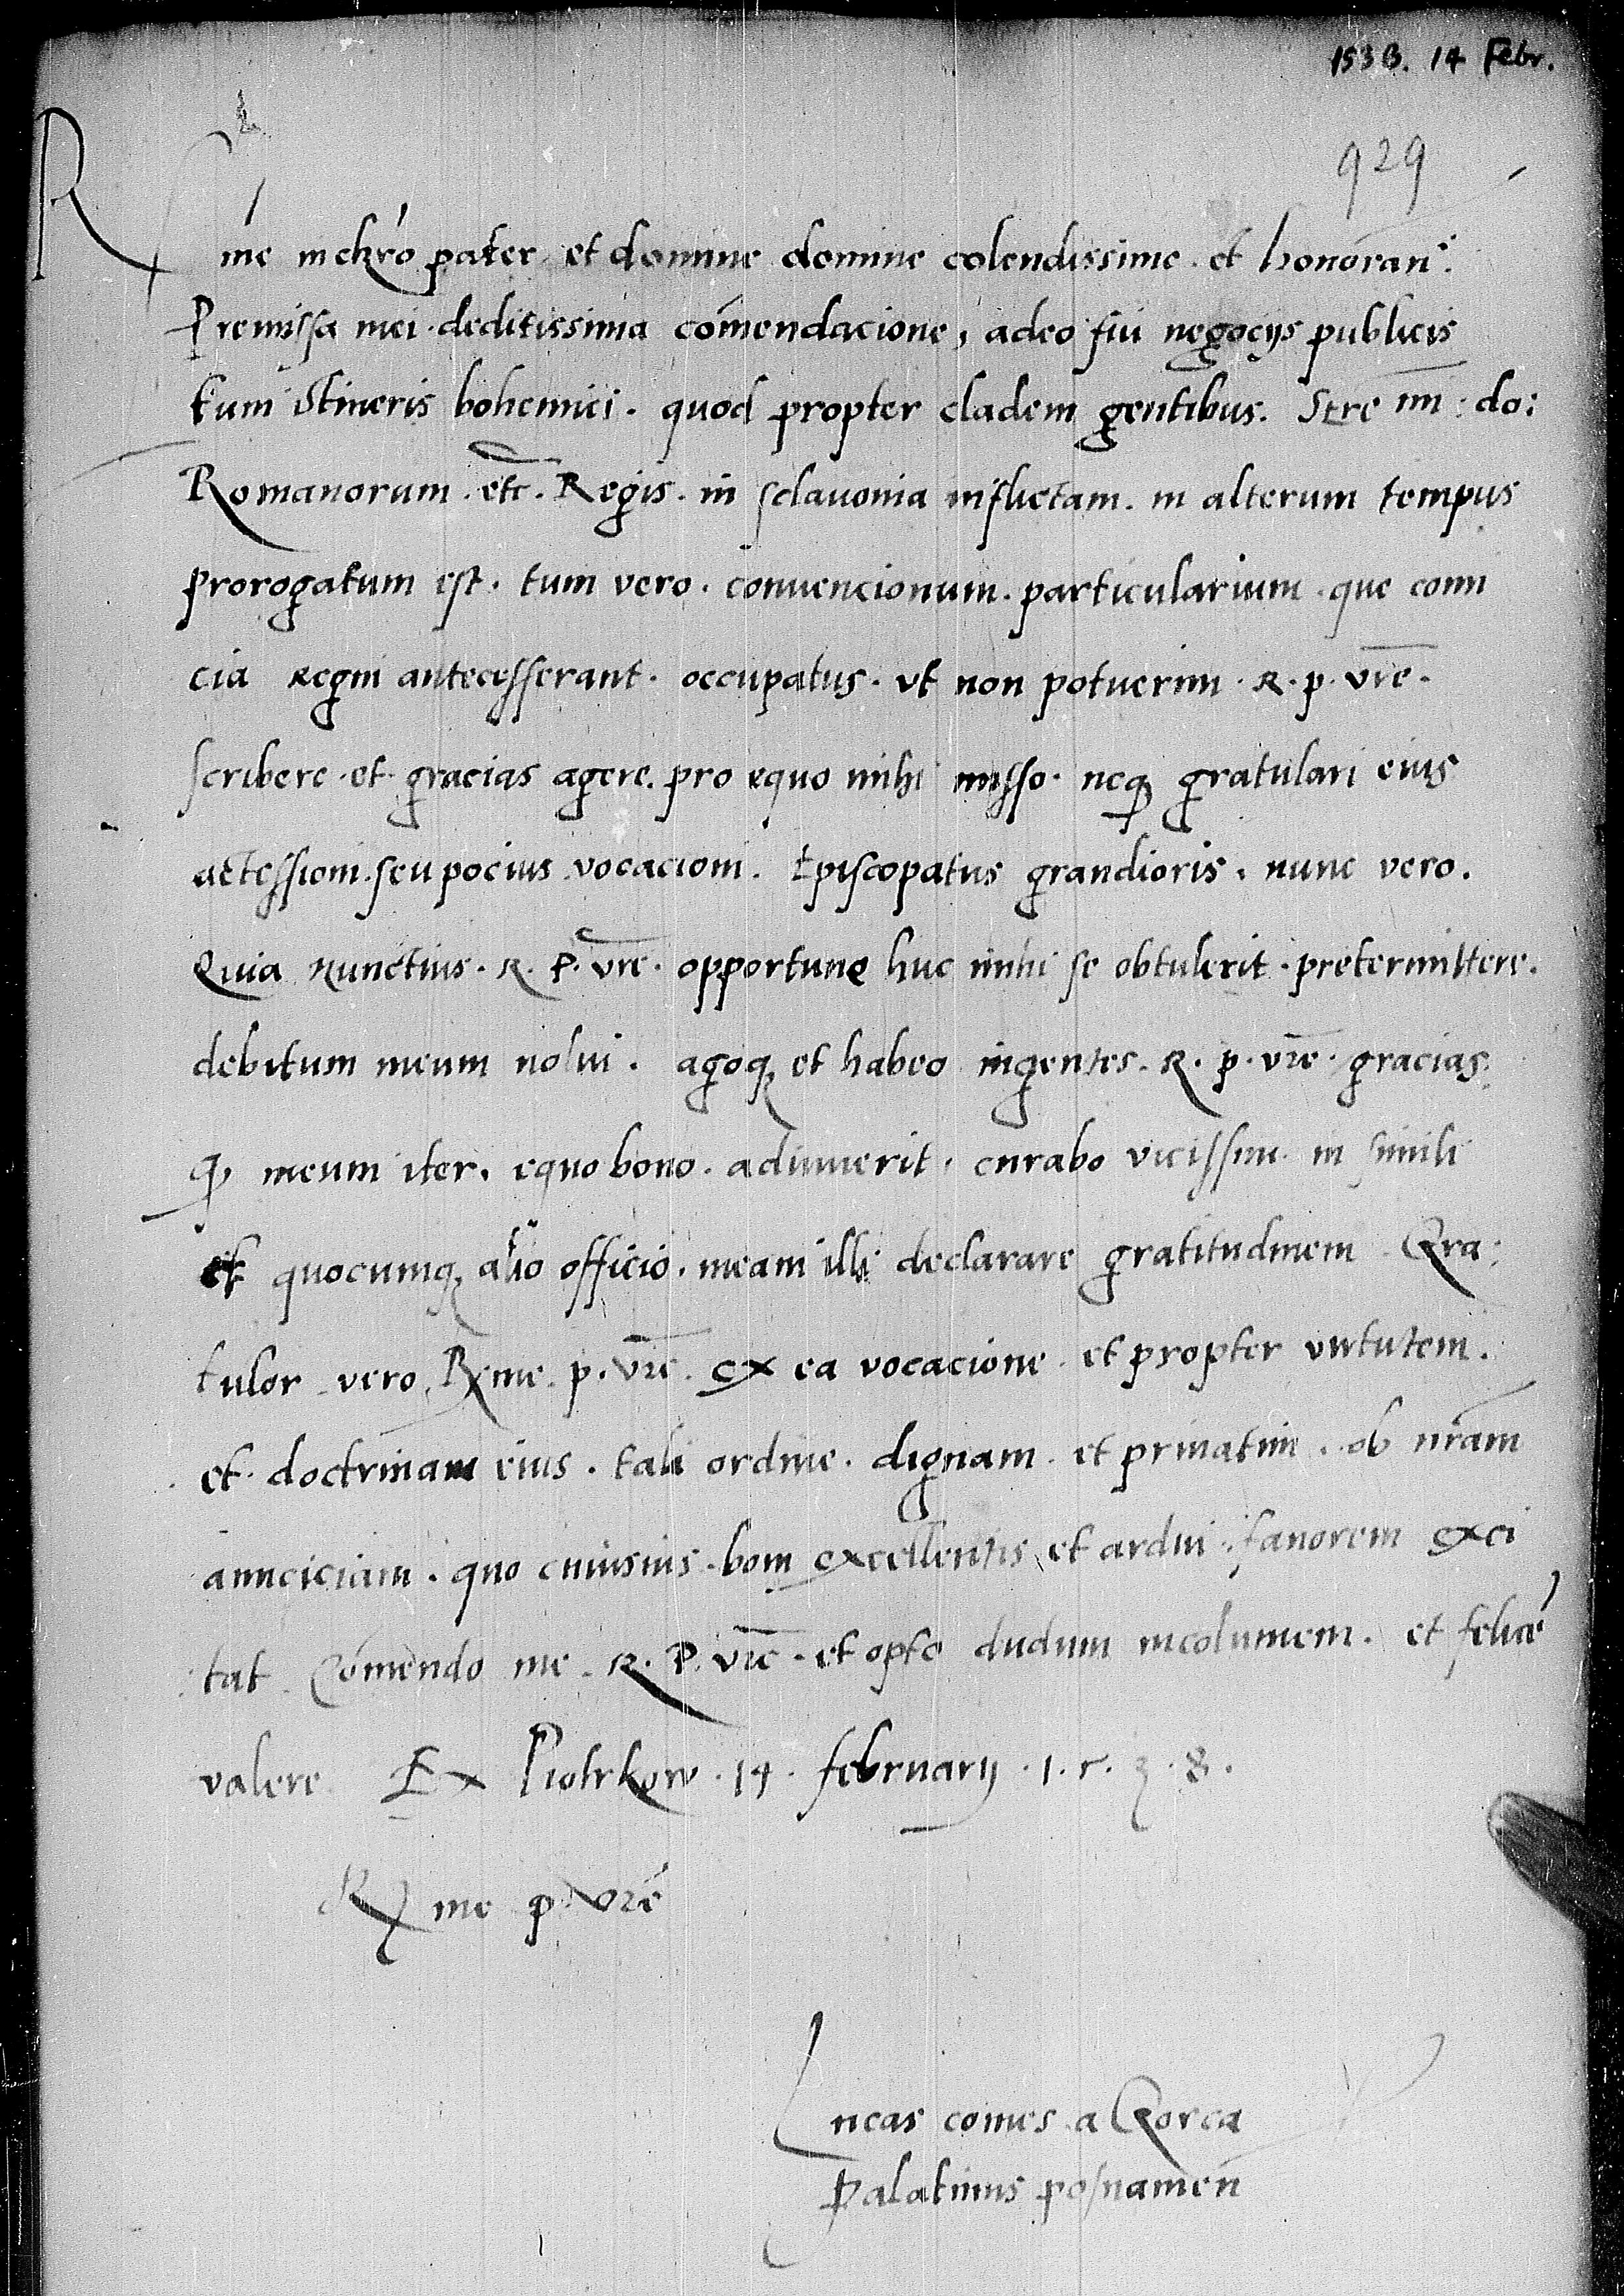 1538. 14 Febr.
929
Rme in chro pater et domine domine colendissime et honoran:
Premissa mei deditissima comendacione, adeo fui negocijs publicis
tum Itineris bohemici. quod propter cladem gentibus. Sere mi: do:
Romanorum. etc. Regis. in sclauonia inflictam. in alterum tempus
prorogatum est. tum vero. conuencionum. particularium. que comi
cia Regni antecesserant. occupatus. vt non potuerim. R. p. vre.
scribere. et gracias agere. pro equo mihi misso. neq gratulari eius
accessioni. seu pocius vocacioni. Episcopatus grandioris. nunc vero.
Quia Nunctius. R. P. vre. opportune huc mihi se obtulerit. pretermittere.
debitum meum nolui. agoq et habeo ingentes. R. p. vre. gracias.
q meum iter. equo bono. adiuuerit. curabo vicissim in simili
et quocumq alio officio. meam illi declarare gratitudinem Gra:
tulor vero Rme. p. vre. ex ea vocacione et propter virtutem.
et doctrinam eius. tali ordine. dignam. et priuatim. ob nram
amiciciam. quo cuiusuis. boni excellentis et ardui. fauorem exci
tat. Comendo me. R. P. vre. et opto dudum incolumem. et felice
valere Ex Piotrkow. 14. februarij. 1. 5. 3. 8.
Rme p. vre
Lucas comes a Gorca
Palatinus posnanien